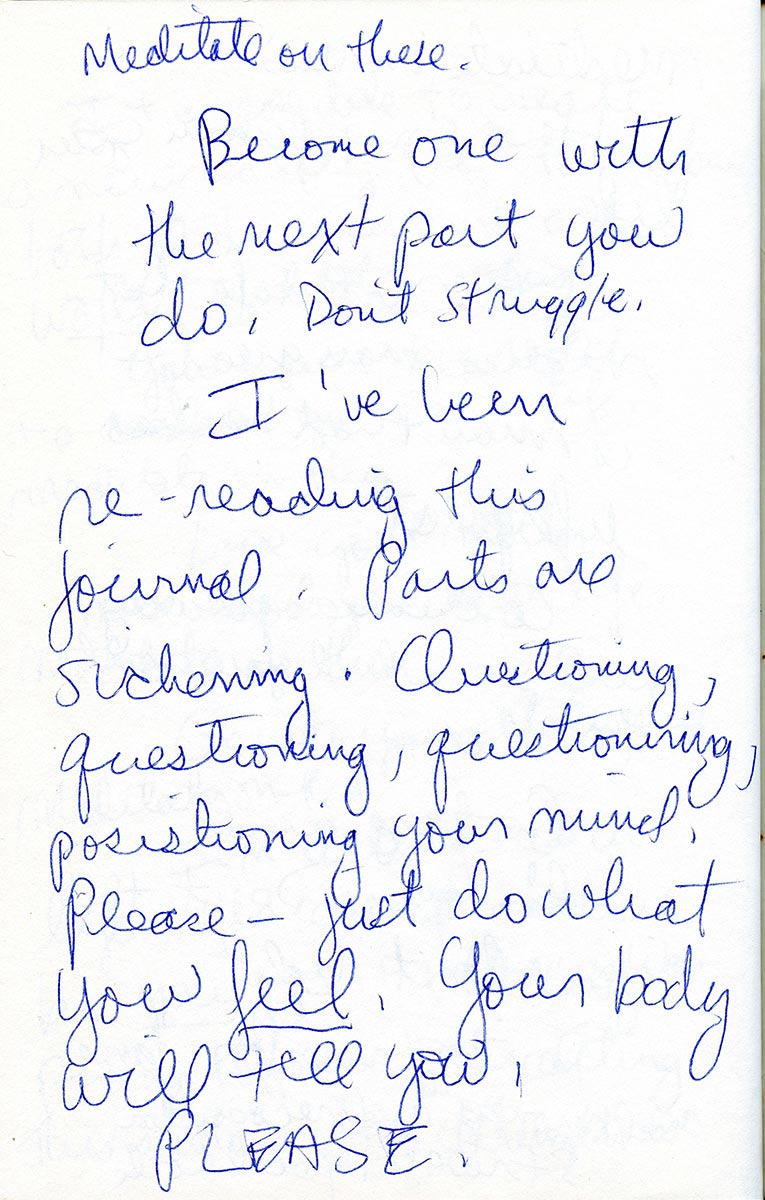 Meditate on these.
Become one with
the next part you
do. Don't struggle.
I've been
re-reading this
journal. Parts are
sickening. Questioning,
questioning, questioning,
posistioning your mind.
Please — just do what
you feel. Your body
will tell you.
PLEASE.